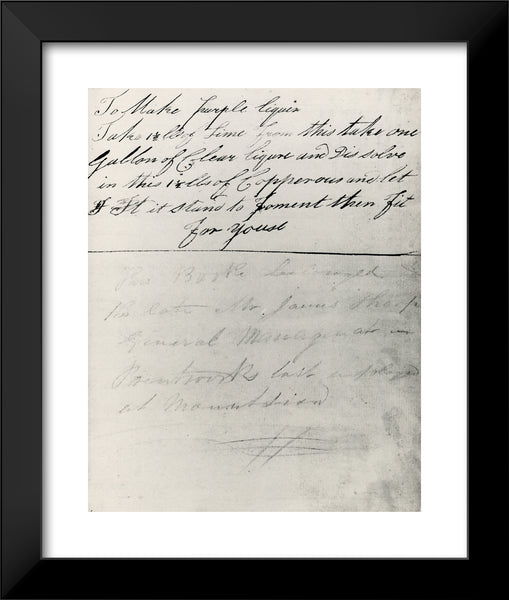 To Make purple liquir
Take lbs Lime from this take one
Gallon of Clear liqure and Dis solve
in this lbs of Copperous and let
It it stand to foment then fit
for youse
This Book belonged
the late Mr. James Tharp
General Manager at
Printworks last employed
at